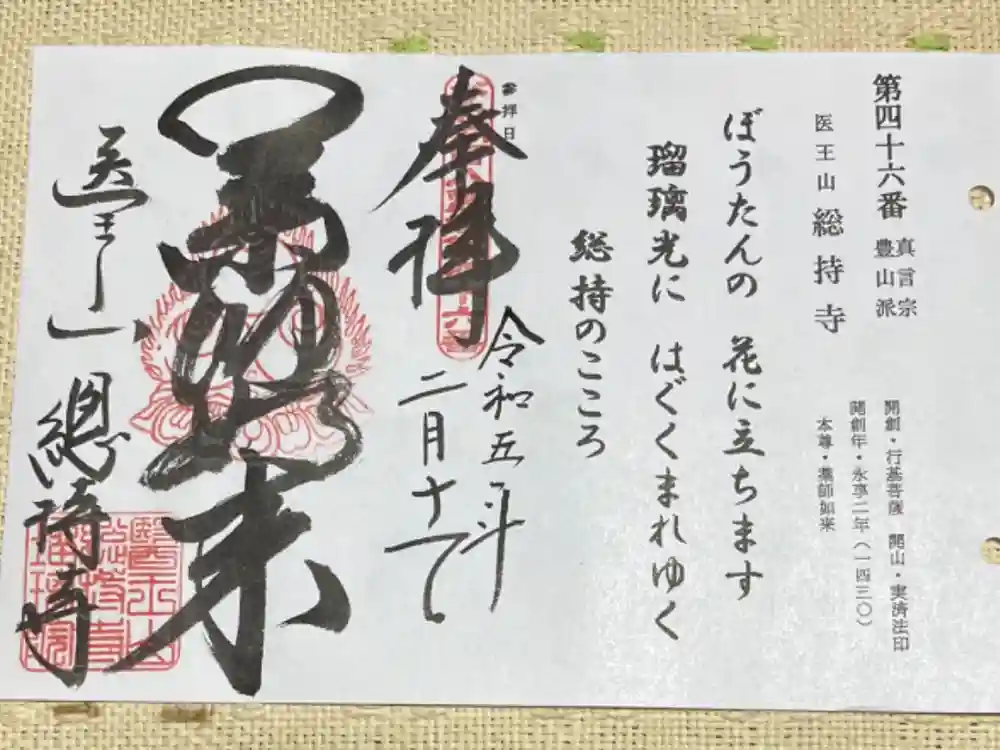 第四十六番 真言宗
豊山派
医王山 総持寺
開創・行基菩薩 開山・実済法印
開創年・永享二年(一四三〇)
本尊・薬師如来
ぼうたんの 花に立ちます
瑠璃光に はぐくまれゆく
総持のこころ
参拝日
奉拝
令和五年
二月十
薬師如来
医王山
總持寺